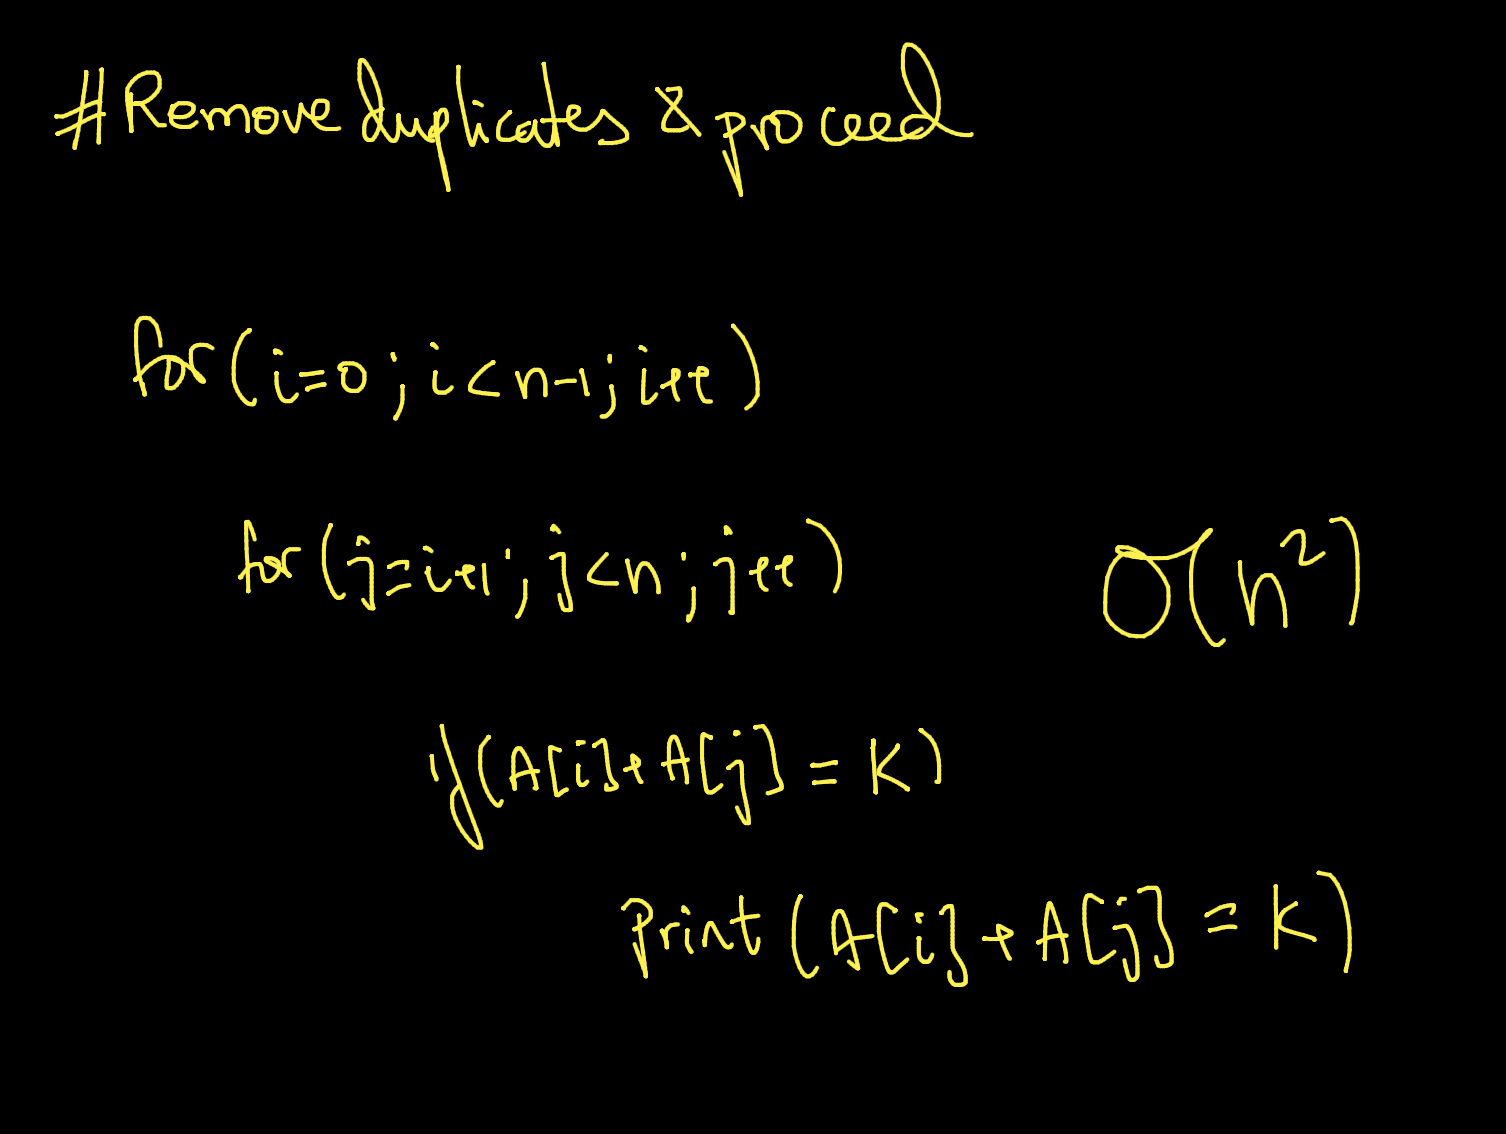 # Remove duplicates & proceed
for (i=0; i<n-1; i++)
for (j=i+1; j<n; j++)
O(n²)
if (A[i]+A[j] = K)
Print (A[i]+A[j] = K)